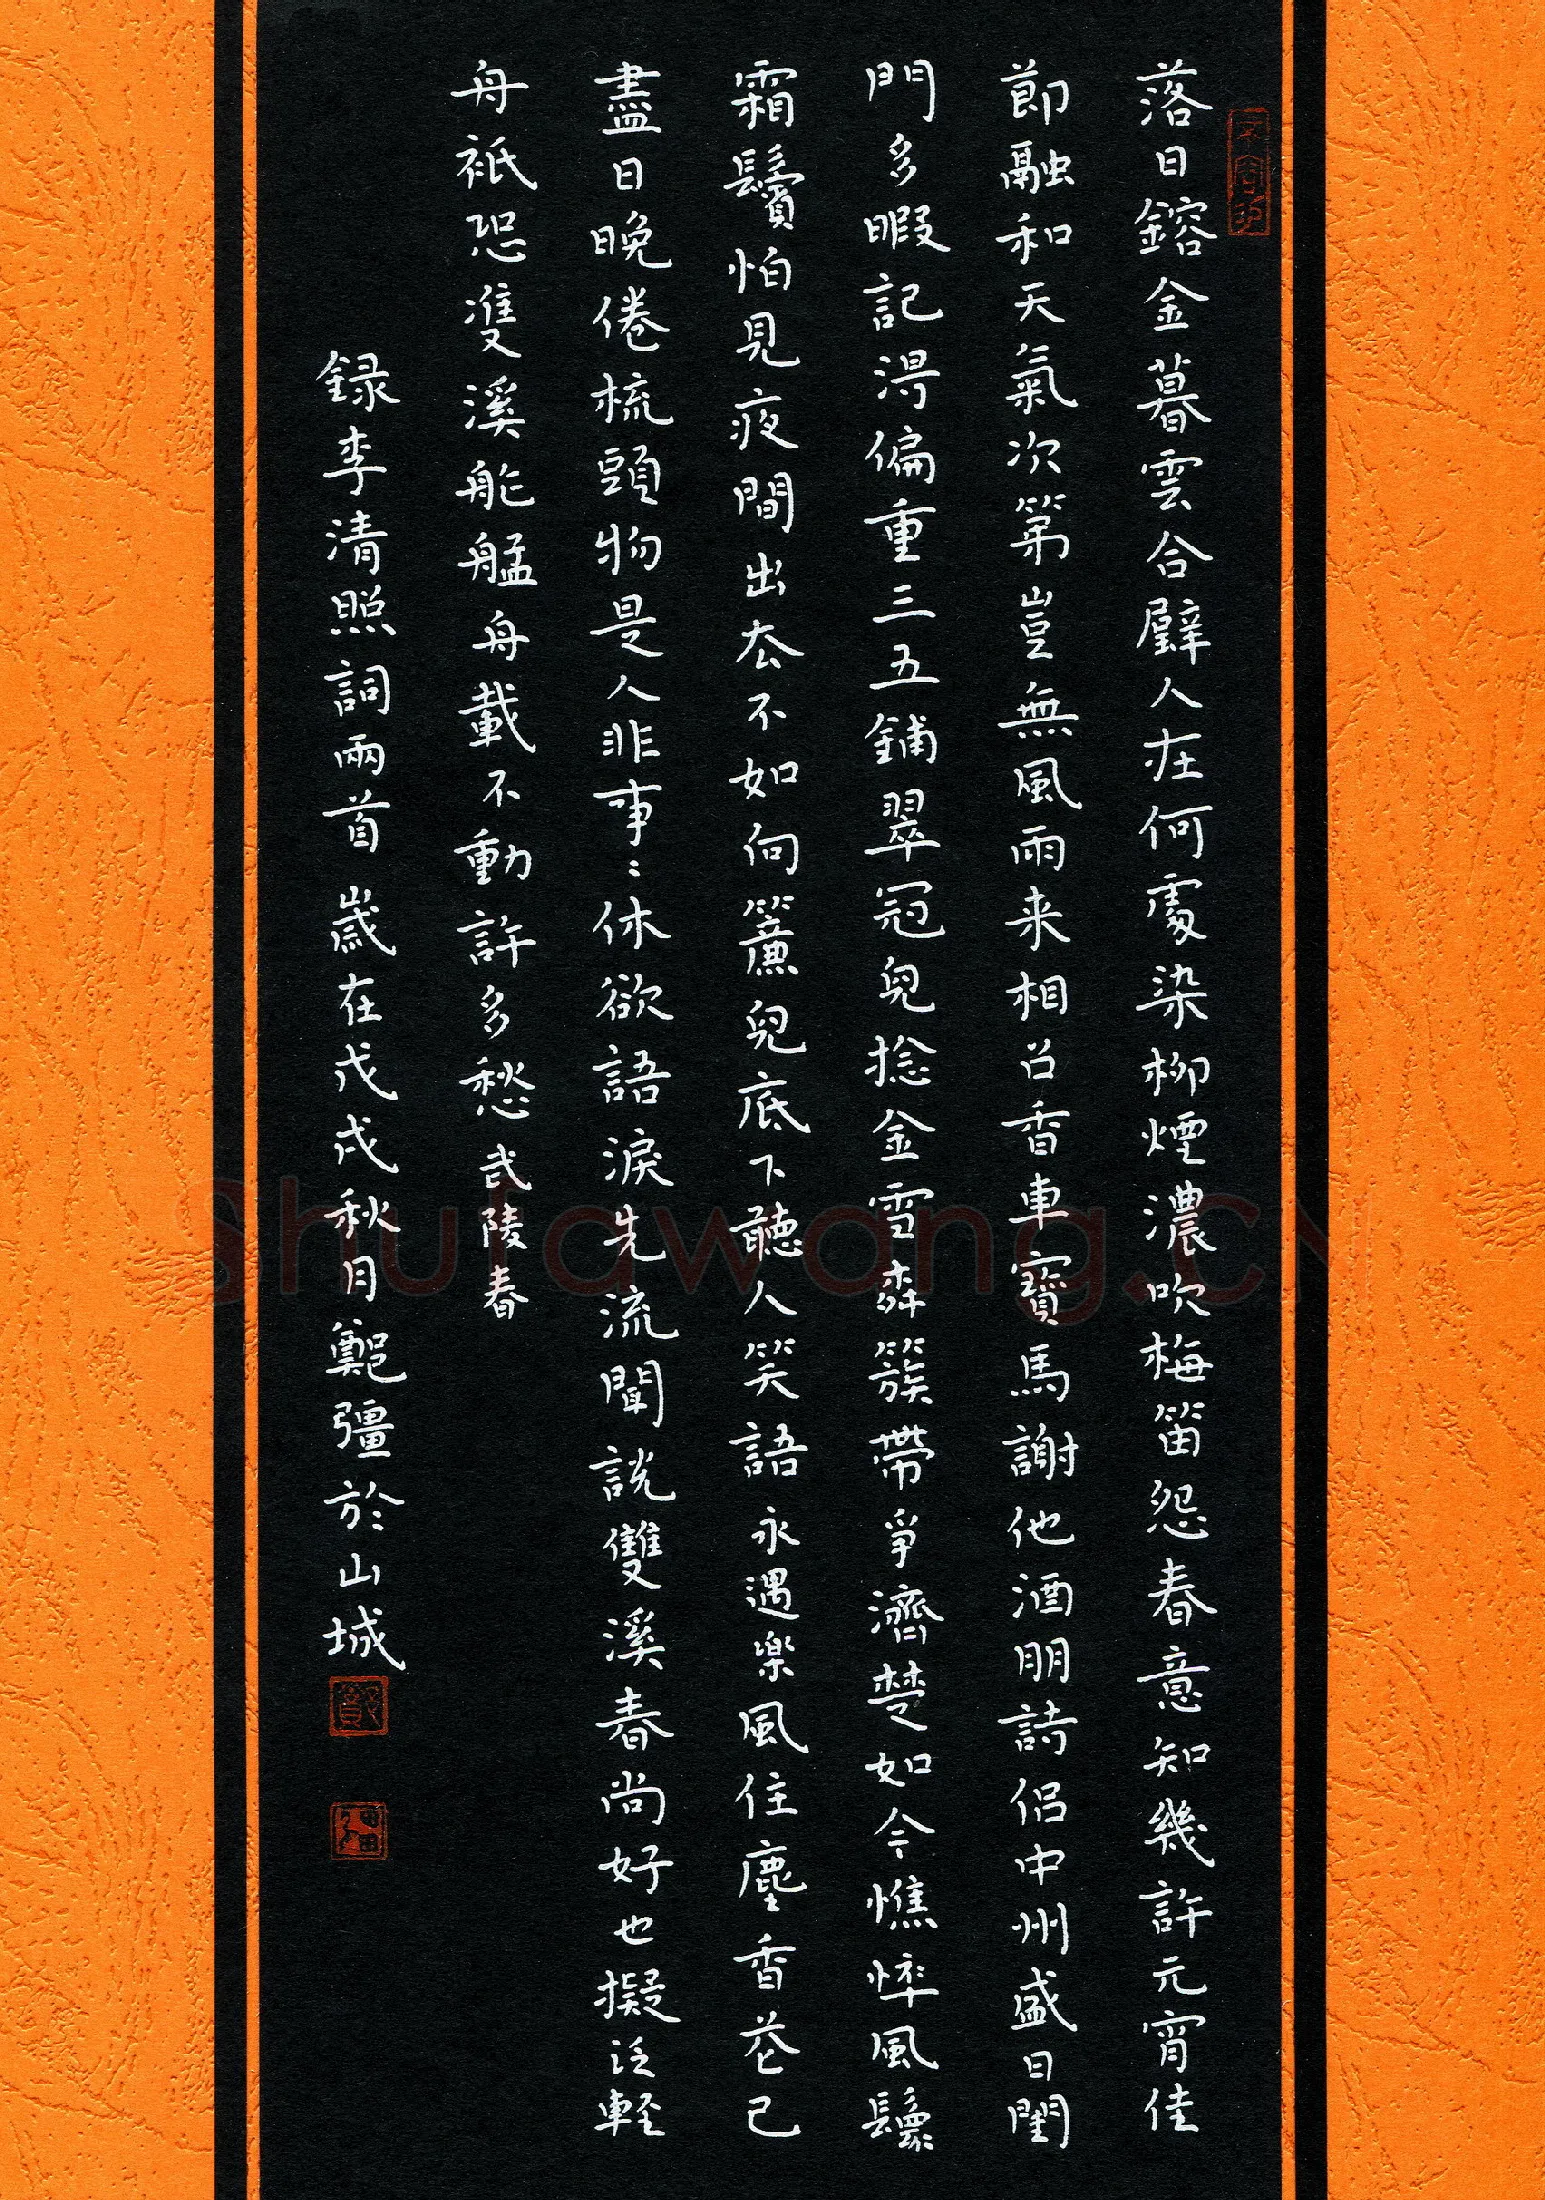 落日鎔金暮雲合璧人在何處染柳煙濃吹梅笛怨春意知幾許元宵佳
節融和天氣次第豈無風雨来相召香車寶馬謝他酒朋詩侶中州盛日閨
門多暇記淂偏重三五鋪翠冠兒捻金雪簇帶爭濟楚如今憔悴風鬟
霜鬢怕見夜間出去不如向簾兒底下聽人笑語永遇樂風住塵香花已
盡日晚倦梳頭物是人非事〻休欲語淚先流聞說雙溪春尚好也擬泛軽
舟衹恐雙溪舴艋舟載不動許多愁武陵春
録李清照詞兩首歲在戊戌秋月鄭彊於山城
Shufawang.CN